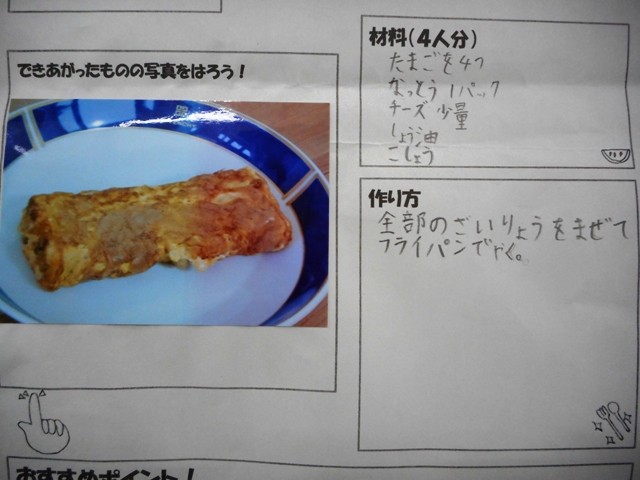 できあがったものの写真をはろう！
材料（4人分）
たまごを4つ
なっとう1パック
チーズ少量
しょう油
こしょう
作り方
全部のざいりょうをまぜて
フライパンでやく。
おすすめポイント！